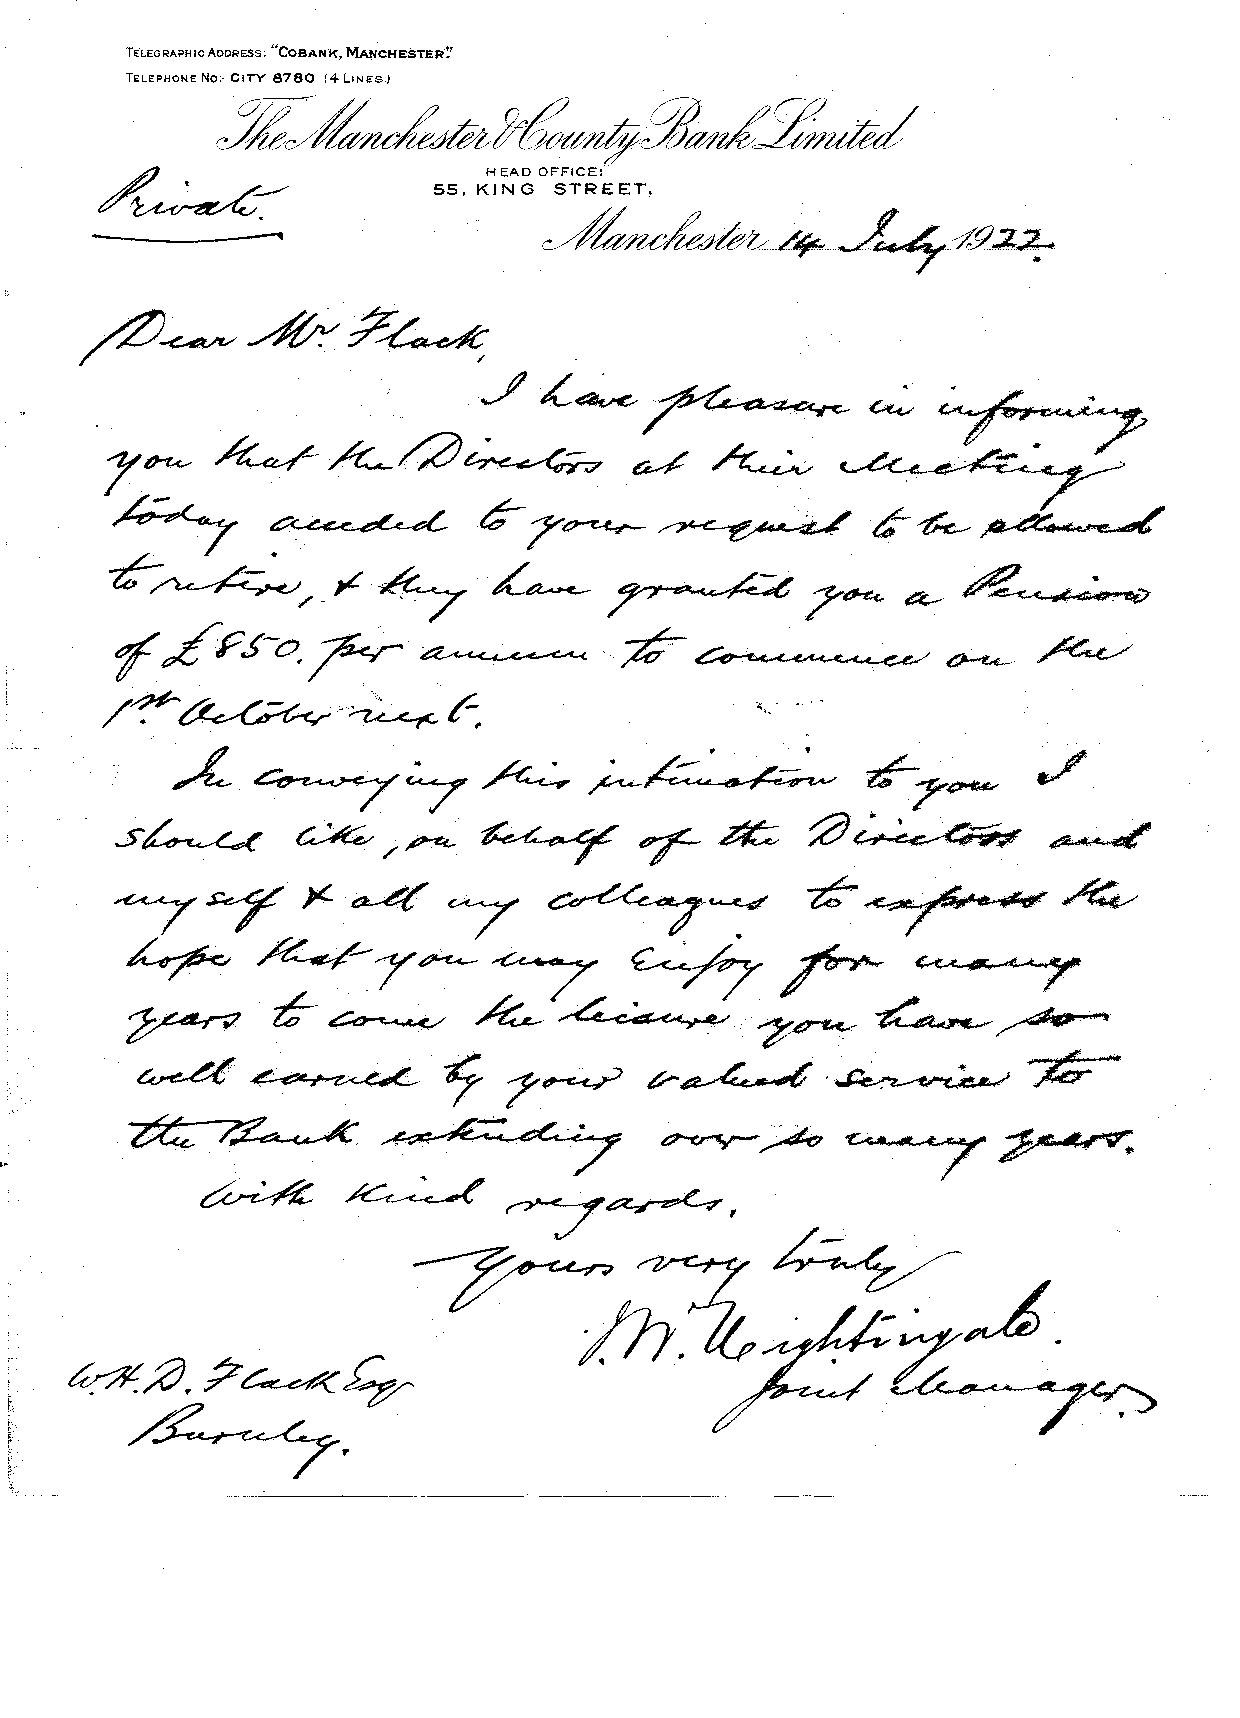 TELEGRAPHIC ADDRESS: "COBANK, MANCHESTER."
TELEPHONE NO:- CITY 8780 (4 LINES.)
The Manchester & County Bank Limited
HEAD OFFICE:
55, KING STREET,
Private.
Manchester 14 July 1922.
Dear Mr. Flack,
I have pleasure in informing
you that the Directors at their Meeting
today acceded to your request to be allowed
to retire, & they have granted you a Pension
of £850. per annum to commence on the
1st. October next.
In conveying this intimation to you I
should like, on behalf of the Directors and
myself & all my colleagues to express the
hope that you may Enjoy for many
years to come the leisure you have so
well earned by your valued service to
the Bank extending over so many years.
With kind regards,
Yours very truly
Nightingale.
Joint Manager.
W.H.D. Flack Esqr
Burnley.